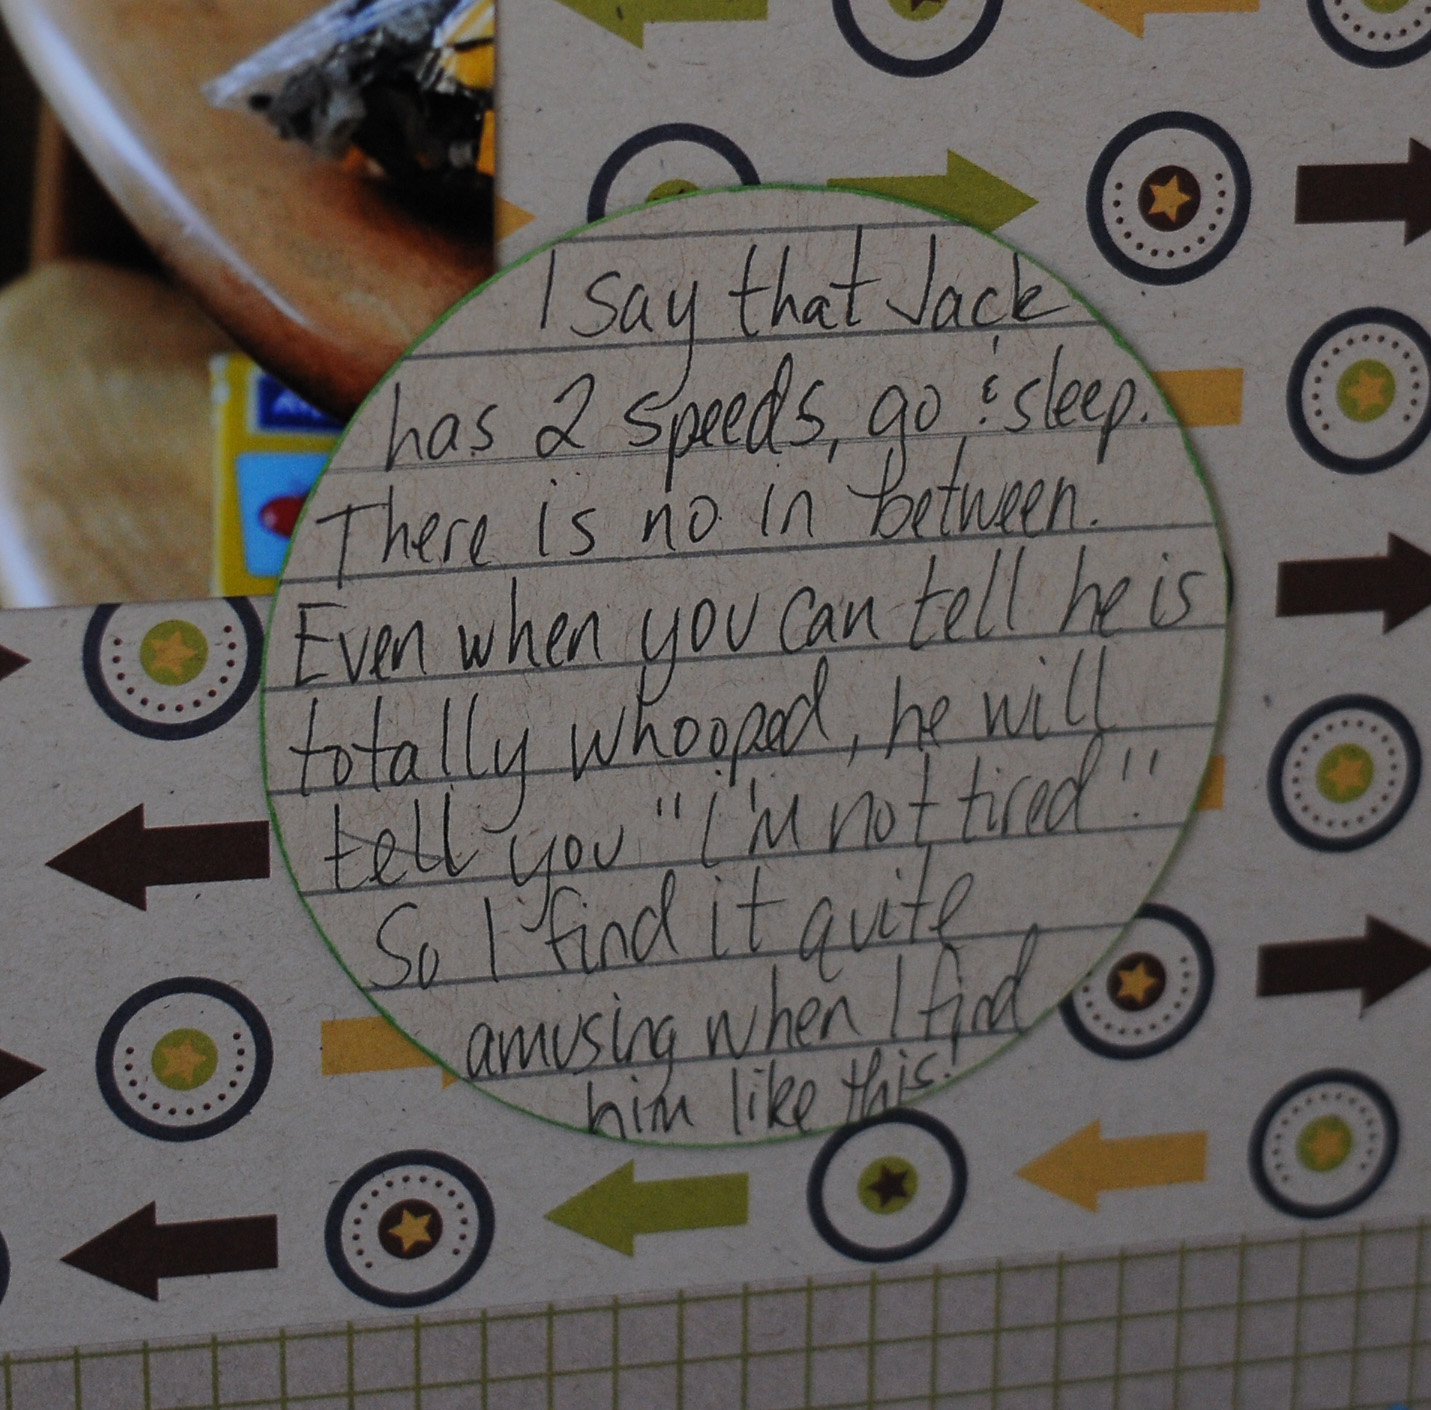 I say that Jack
has 2 speeds, go & sleep.
There is no in between.
Even when you can tell he is
totally whooped, he will
tell you "i'm not tired"!
So I find it quite
amusing when I find
him like this!